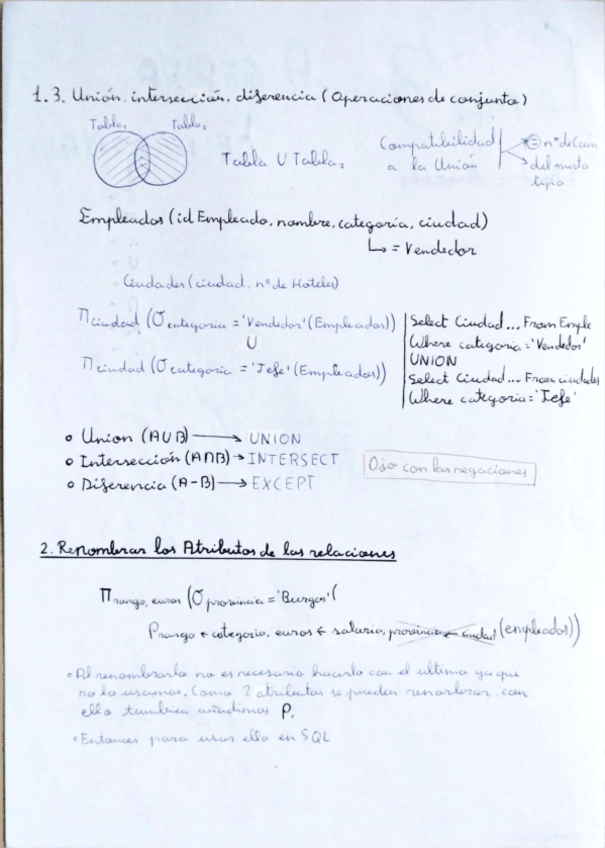 1.3. Unión, intersección, diferencia (Operaciones de conjunto)
Tabla₁ Tabla₂
Tabla U Tabla₂
Compatibilidad a la Unión
= nº de
del mismo tipo
Empleados (id Empleado, nombre, categoría, ciudad)
↳ = Vendedor
Ciudades (ciudad, nº de Hoteles)
π ciudad (σ categoria = 'Vendedor' (Empleados))
U
π ciudad (σ categoria = 'Jefe' (Empleados))
Select Ciudad... From Emple
Where categoria = 'Vendedor'
UNION
Select Ciudad... From ciudades
Where categoria = 'Jefe'
o Union (AUB) → UNION
o Intersección (A∩B) → INTERSECT
o Diferencia (A-B) → EXCEPT
Ojo con las negaciones
2. Renombrar los Atributos de las relaciones
π rango, euros (σ provincia = 'Burgos' (
ρ rango ← categoria, euros ← salario, provincia ← ciudad (empleados))
o Al renombrarla no es necesario hacerlo con el ultimo ya que
no lo usamos. Como 2 atributos se pueden renombrar, con
ello tambien añadimos ρ.
o Entonces para usar ello en SQL